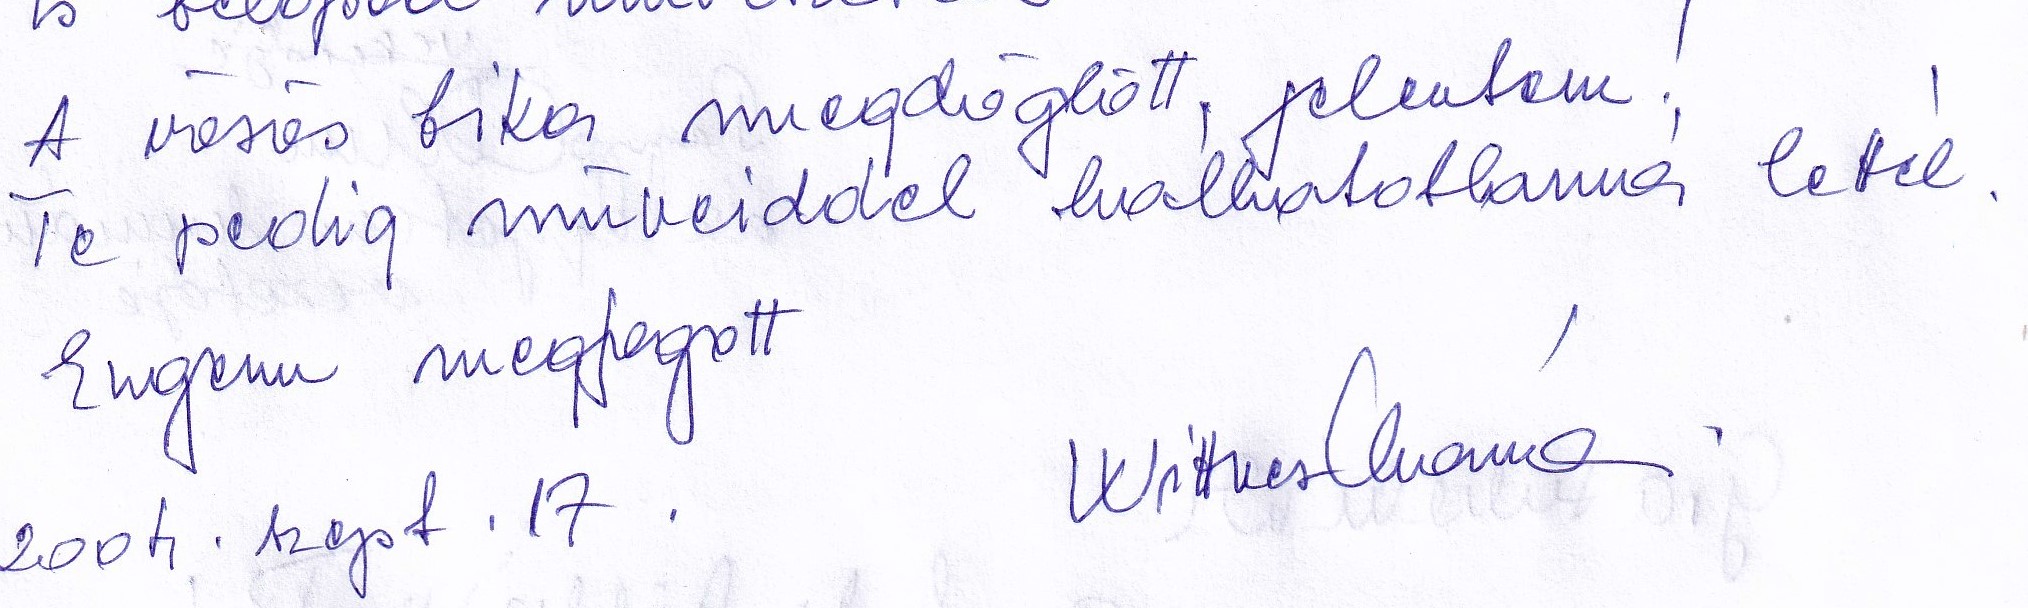 A vörös bika megdöglött, jelentem!
Te pedig műveiddel halhatatlanná lettél.
Engem megfogott
Wittner Mária
2004. szept. 17.